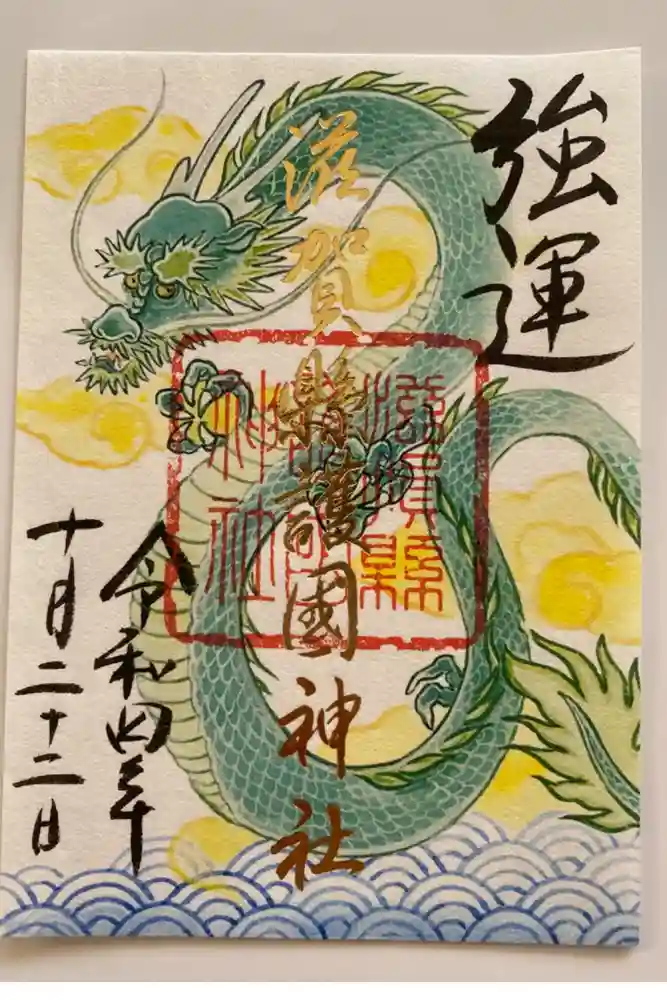 強運
滋賀縣護國神社
滋賀縣
神社
令和四年
十月二十二日